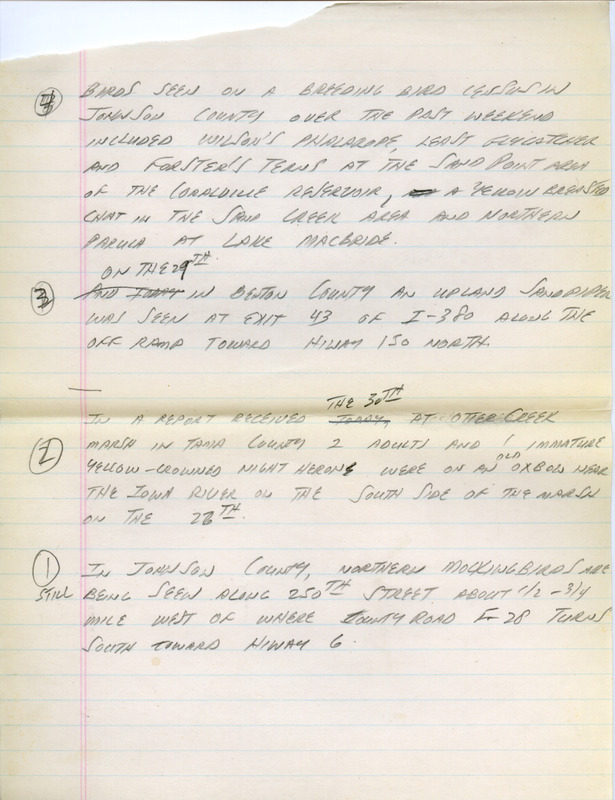 4 BIRDS SEEN ON A BREEDING BIRD CENSUS IN
JOHNSON COUNTY OVER THE PAST WEEKEND
INCLUDED WILSON'S PHALAROPE, LEAST FLYCATCHER
AND FORSTER'S TERNS AT THE SAND POINT AREA
OF THE CORALVILLE RESERVOIR, A YELLOW BREASTED
CHAT IN THE SAND CREEK AREA AND NORTHERN
PARULA AT LAKE MACBRIDE.
ON THE 29TH
3 AND TODAY IN BENTON COUNTY AN UPLAND SANDPIPER
WAS SEEN AT EXIT 43 OF I-380 ALONG THE
OFF RAMP TOWARD HIWAY 150 NORTH.
THE 30TH
IN A REPORT RECEIVED TODAY, AT OTTER CREEK
2 MARSH IN TAMA COUNTY 2 ADULTS AND 1 IMMATURE
OLD
YELLOW-CROWNED NIGHT HERONS WERE ON AN OXBOW NEAR
THE IOWA RIVER ON THE SOUTH SIDE OF THE MARSH
ON THE 28TH.
1 IN JOHNSON COUNTY, NORTHERN MOCKINGBIRDS ARE
STILL BEING SEEN ALONG 250TH STREET ABOUT 1/2 - 3/4
MILE WEST OF WHERE COUNTY ROAD F-28 TURNS
SOUTH TOWARD HIWAY 6.